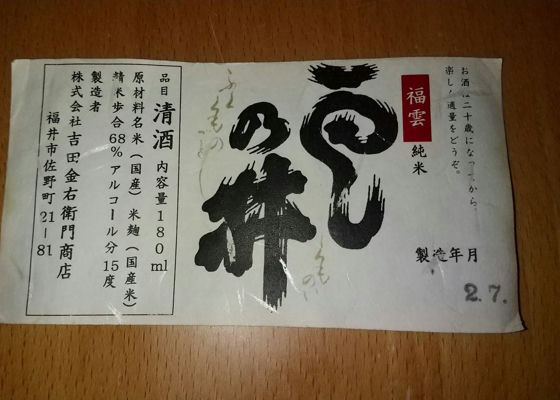 お酒は二十歳になってから。
楽しく適量をどうぞ。
福雲
純米
製造年月
2.7.
雲の井
品目 清酒 内容量180ml
原材料名米(国産)米麹(国産米)
精米歩合68% アルコール分15度
製造者
株式会社吉田金右衛門商店
福井市佐野町21-81